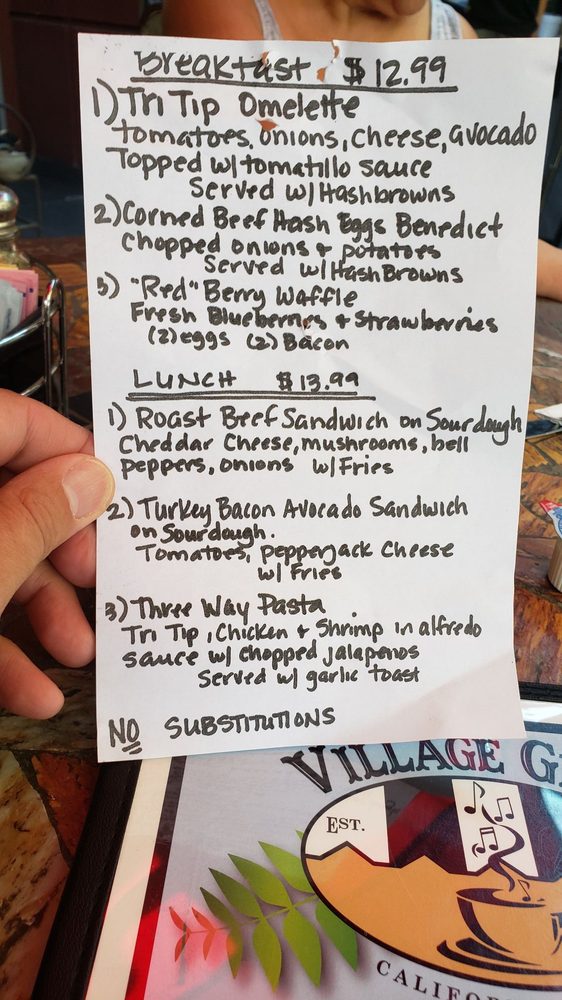 Breakfast $12.99
1) Tri Tip Omelette
tomatoes, onions, cheese, avocado
Topped w/tomatillo sauce
Served w/Hashbrowns
2) Corned Beef Hash Eggs Benedict
Chopped onions + potatoes
Served w/HashBrowns
3) "Red" Berry Waffle
Fresh Blueberries + Strawberries
(2) eggs (2) Bacon
LUNCH $13.99
1) Roast Beef Sandwich on Sourdough
Cheddar Cheese, mushrooms, bell
peppers, onions w/Fries
2) Turkey Bacon Avocado Sandwich
on Sourdough.
Tomatoes, pepperjack Cheese
w/ Fries
3) Three Way Pasta
Tri Tip, Chicken + Shrimp in alfredo
sauce w/ chopped jalapenos
Served w/ garlic toast
NO SUBSTITUTIONS
VILLAGE G
EST.
CALIFO